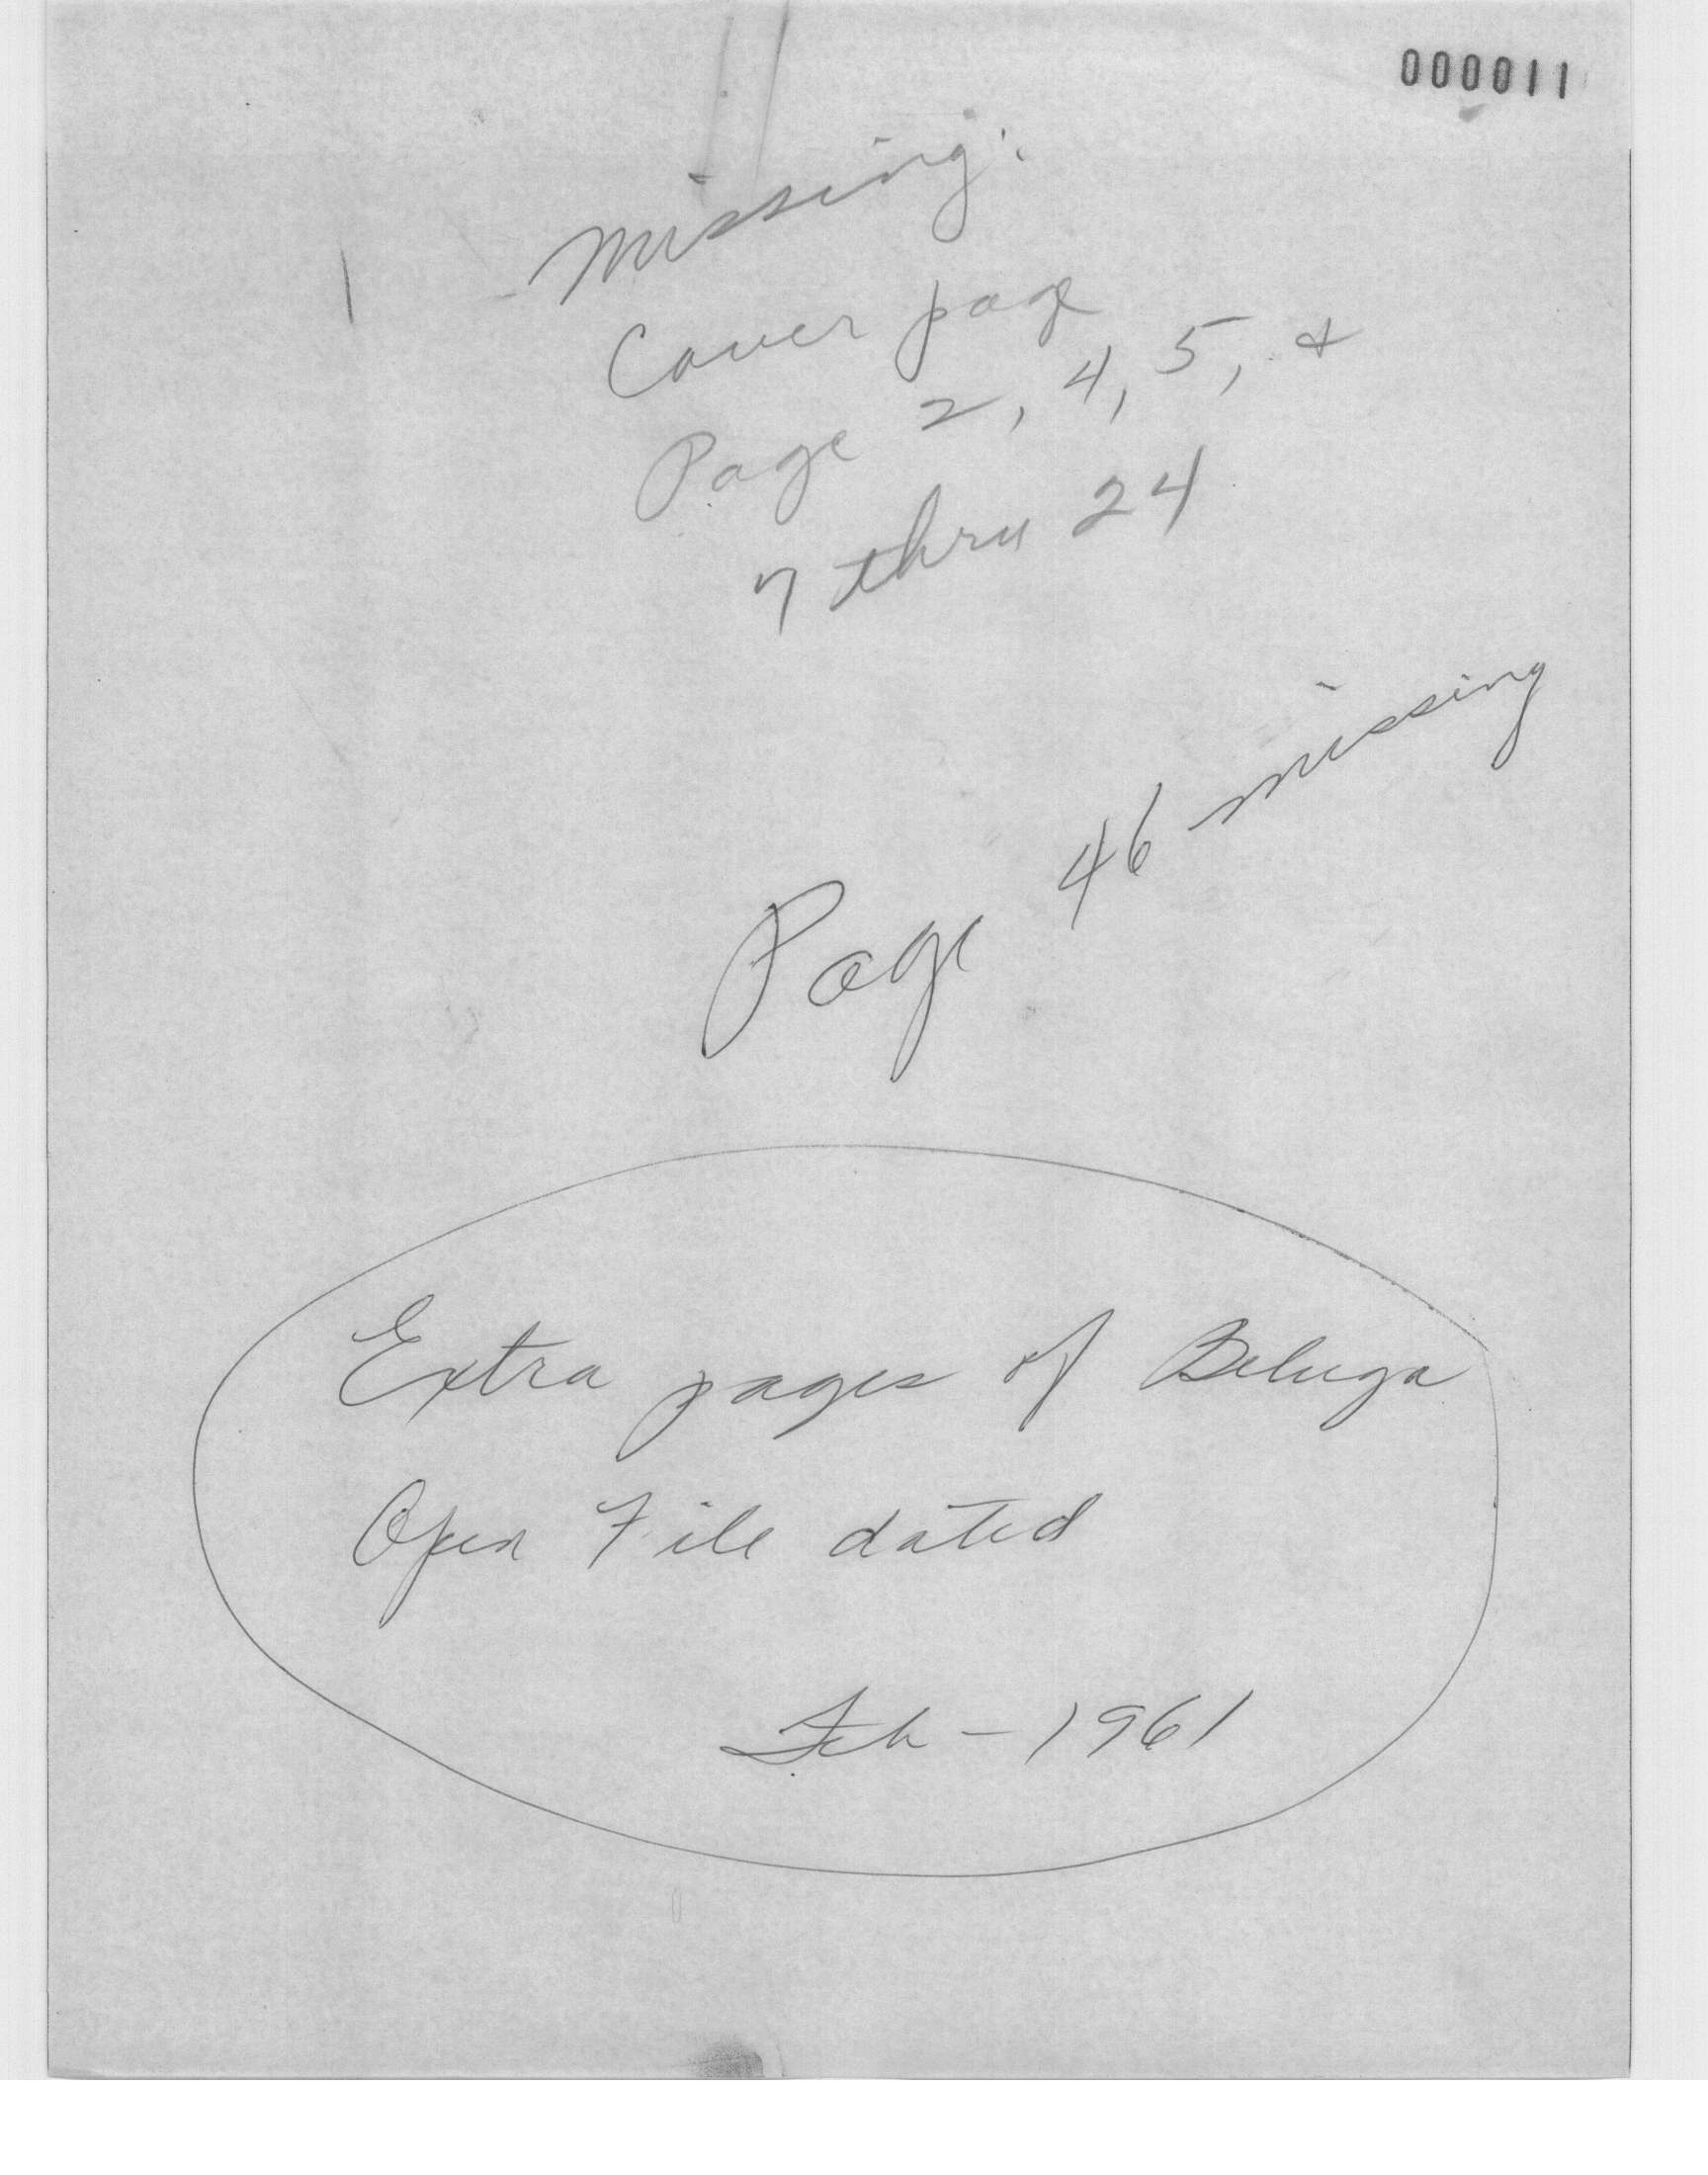 000011
Missing:
Cover page
Page 2, 4, 5, &
7 thru 24
Page 46 missing
Extra pages of Beluga
Open File dated
Feb - 1961